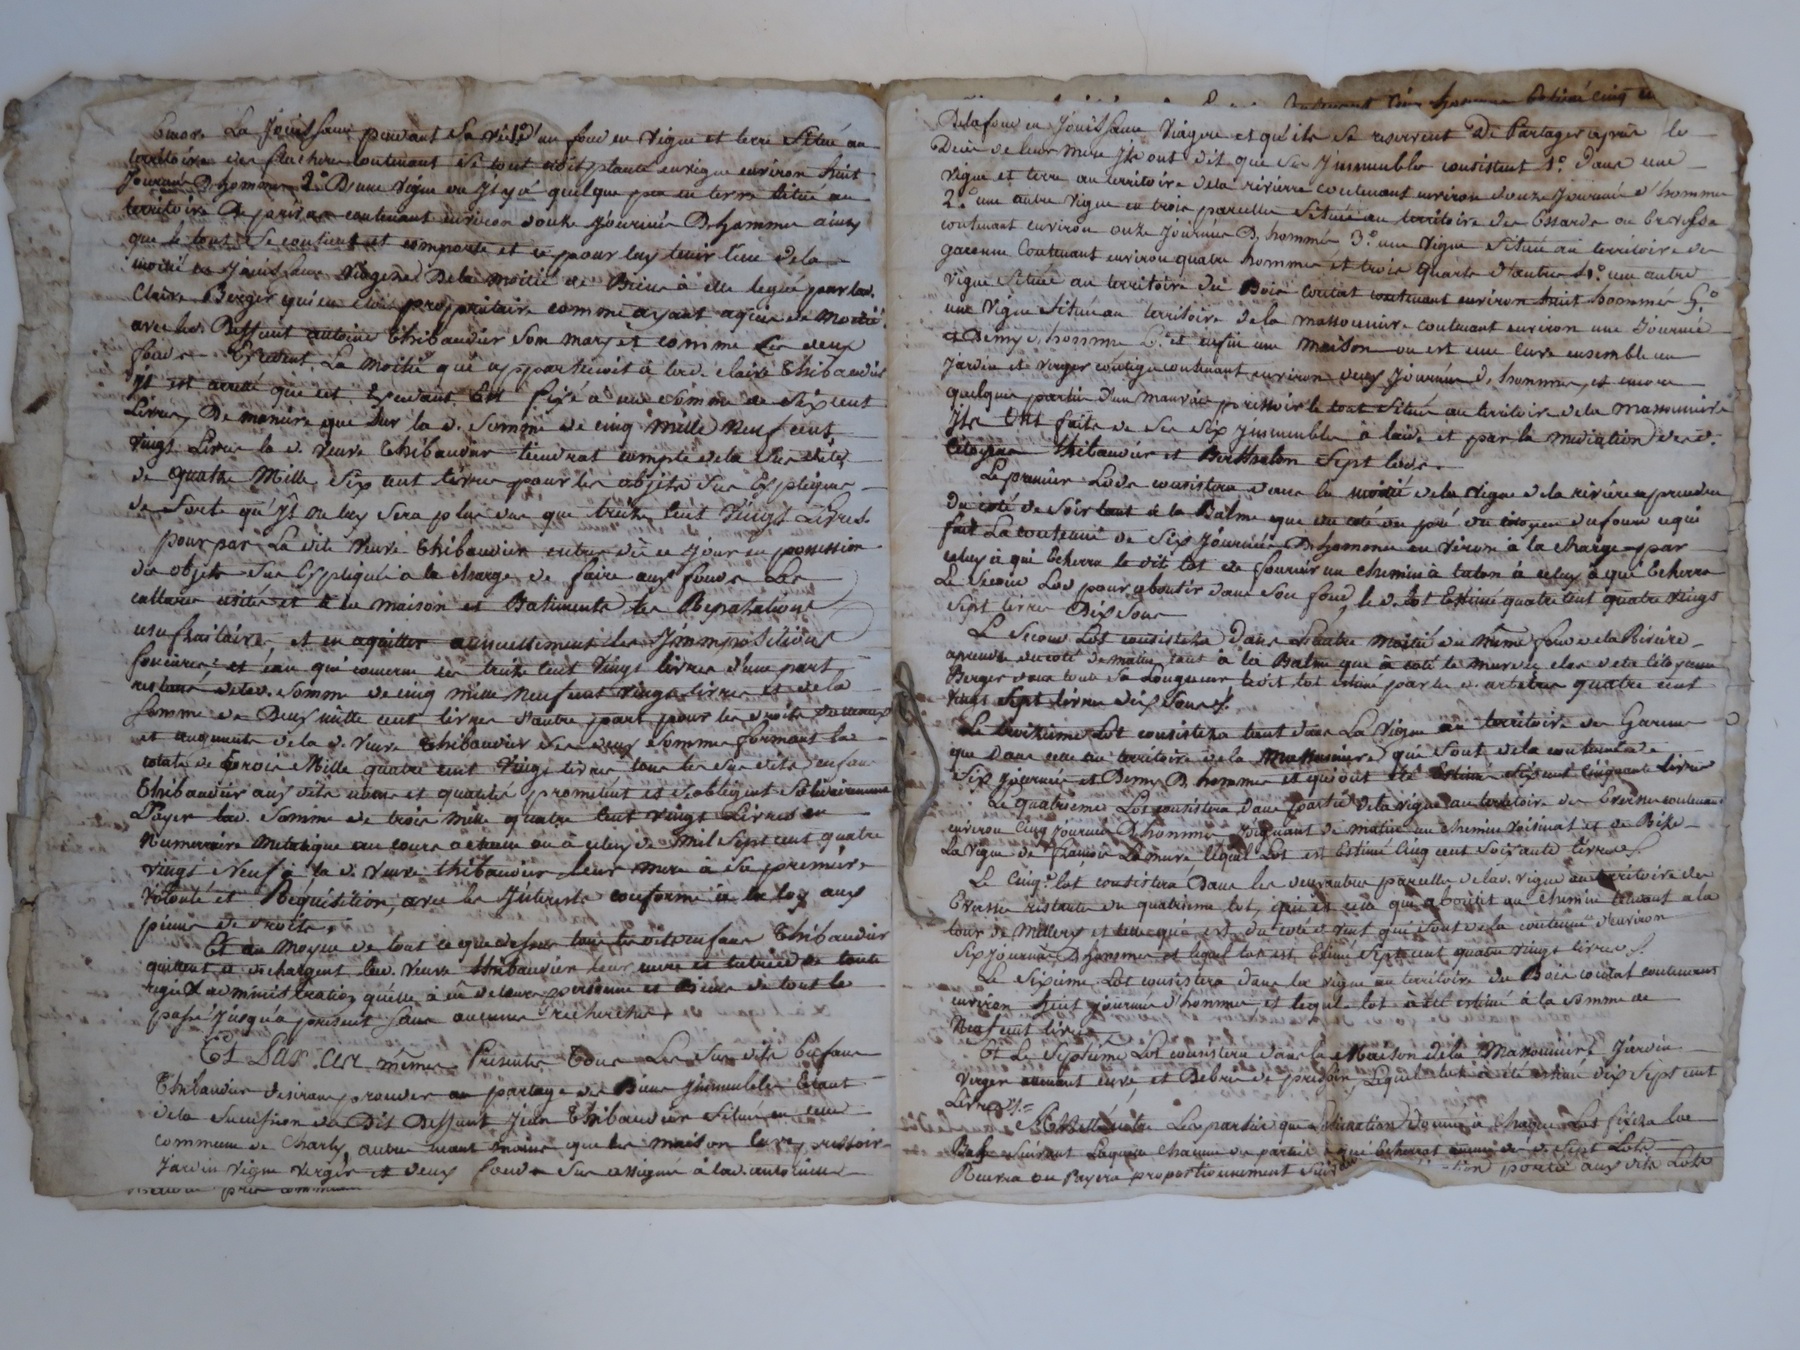 Encore La Jouissance pendant sa vie 1º d'un fond en vigne et terre Situé au
territoire des flachere contenant le tout soit plante en vigne environ huit
Journée D'hommes 2º D'une vigne ou Il y a quelque peu de terre située au
territoire De contenant environ douze Journée D'homme ainsy
que le tout Se contient et comporte et ce pour luy tenir lieu de la
moitié en Jouissance viagere De la moitié des Biens à elle legué par lad.
Claire Berger qui en étoit propriétaire comme ayant aquis de moitié
avec led. Deffunt antoine Thibaudier Son mary et comme les deux
fonds Excedent La moitié qui appartenoit à lad. claire Thibaudier
Il est arreté que cet Excedant Est fixé à une somme de Six cent
Livres, De maniere que Sur la d. Somme de cinq Mille Neuf cent
vingt Livres la d. veuve Thibaudier tiendrat compte de la Sus dite
de quatre Mille Six cent livres pour les objets Sus Expliqués
de Sorte qu'Il ne luy Sera plus due que treize cent Vingt Livres.
pourpar La dite Veuve Thibaudier entrer dès ce Jour en possession
des objets Sus Expliqués a la charge de faire aux fonds Les
cultures usités et à la maison et Batiments les Reparations
usufruitaire, et en aquitter annuellement les Impositions
foncières et eau qui concerne les treize cent vingt livres d'une part
restant de lad. Somme de cinq mille Neuf cent vingt livres et de la
Somme de Deux mille cent livres d'autre part pour les droits
et augments de la d. Veuve Thibaudier Ses deux Somme formant la
totale de trois Mille quatre cent Vingt livres tous les Sus dits enfans
Thibaudier aux dits noms et qualités promettent et s'obligent Solidairement
Payer lad. Somme de trois mille quatre cent vingt Livres en
Numeraire Metalique au cours actuel ou à celuy de Mil Sept cent quatre
vingt Neuf à la d. Veuve thibaudier leur mere à Sa premiere
volonté et Requisition, avec les Interets conforme à la loy aux
peines de droits,
Et au Moyen de tout ce que dessus tous les dits enfans Thibaudier
quittent et dechargent lad. veuve Thibaudier leur mere et tutrice de toute
regie & administration quelle à eu de leurs personnes et Biens de tout le
passé Jusqu'a present Sans aucunes recherches,
Et Par ces mêmes Présentes Tous Les Sus dits Enfans
Thibaudier desirans proceder au partage des Biens Immeubles Etant
de la Succession du Dit Deffunt Jean Thibaudier Situé en cette
commune de Charly, autre neant moins que les maison cuves pressoir
Jardin vigne verger et deux fonds Sus assigné à lad. antoinette
De la fond en Jouissance Viagere et qu'ils se reservent De Partager après le
Decès de leur Mere Ils ont dit que Ses Immeubles consistent 1º dans une
vigne et terre au territoire de la riviere contenant environ douze Journée d'homme
2º une autre vigne en trois parcelles Située au territoire des Essards ou Evesse
contenant environ onze Journée D'hommes 3º une Vigne Située au territoire de
garenne Contenant environ quatre hommes et trois quarts d'autre 4º une autre
vigne Située au territoire du Bois coutat contenant environ huit hommes 5º
une Vigne Située au territoire de la massonniere contenant environ une Journée
et Demy d'homme 6º et enfin une Maison ou est une Cuve ensemble un
Jardin et verger contigu contenant environ deux Journée d'homme, et encore
quelque partie d'un mauvais pressoir le tout Situé au teritoire de la Massonniere
Ils Ont faits de Ses Six Immeubles à l'aide et par la mediation des d.
Citoyens Thibaudier et Berthelon Sept lods.
Le premier Lods consistera dans la moitié de la vigne de la riviere a prendre
du coté de Soir tant à la Balme que du coté du pré du citoyen dufour ce qui
fait La contenue de Six Journées D'homme en viron à la charge par
celuy à qui Echerra le dit lot de fournir un chemin à talon à celuy à qui Echerra
Le Second Lod pour aboutir dans Son fond, le d. lot Estimé quatre cent quatre vingt
Sept livres Dix Sous
Le Second Lot consistera Dans L'autre Moitié du Même fond de la Riviere
a prendre du coté de matin tant à la Balme que à coté le mur du clos de la Citoyenne
Berger dans toute Sa Longueur ledit lot estimé par les d. arbitres quatre cent
vingt Sept livres dix Sous
Le troisieme Lot consistera tant dans La Vigne au territoire de Garenne
que Dans celle au territoire de la Massonniere qui Sont de la contenue de
Six Journées et Demy D'homme et qui ont été Estimé Six cent Cinquante livres
Le quatrieme Lot consistera dans partie de la vigne au territoire des Evesse contenant
environ Cinq Journée D'homme, Joignant de matin un chemin voisinat et de Bize
la vigne de Lequel Lot est Estimé Cinq cent Soixante livres
Le Cinq.e lot consistera Dans les deux autres parcelles de lad. vigne au territoire des
Evesse restante du quatrieme lot, qui est celle qui aboutit au Chemin tendant a la
tour de Millery et celle qui est du coté de vent qui Sont de la contenue d'environ
Six Journée D'hommes et lequel lot est Estimé Sept cent quatre vingt livres
Le Sixieme Lot consistera dans la vigne au territoire du Bois coutat contenant
environ Huit Journée d'hommes et lequel lot a été estimé à la Somme de
Neuf cent livres
Et Le Septieme Lot consistera dans la Maison de la Massonniere Jardin
Verger cuve, et Debris de pressoir, Lequel lot à été estimé Dix Sept cent
Livres
Les parties que l'Estimation Donnée à chaque Lot fixera la
Base Suivant Laquelle Chacune des parties à qui echerrat aucun des d. Sept Lots
Recevra ou Payera proportionnement portée aux dits Lots